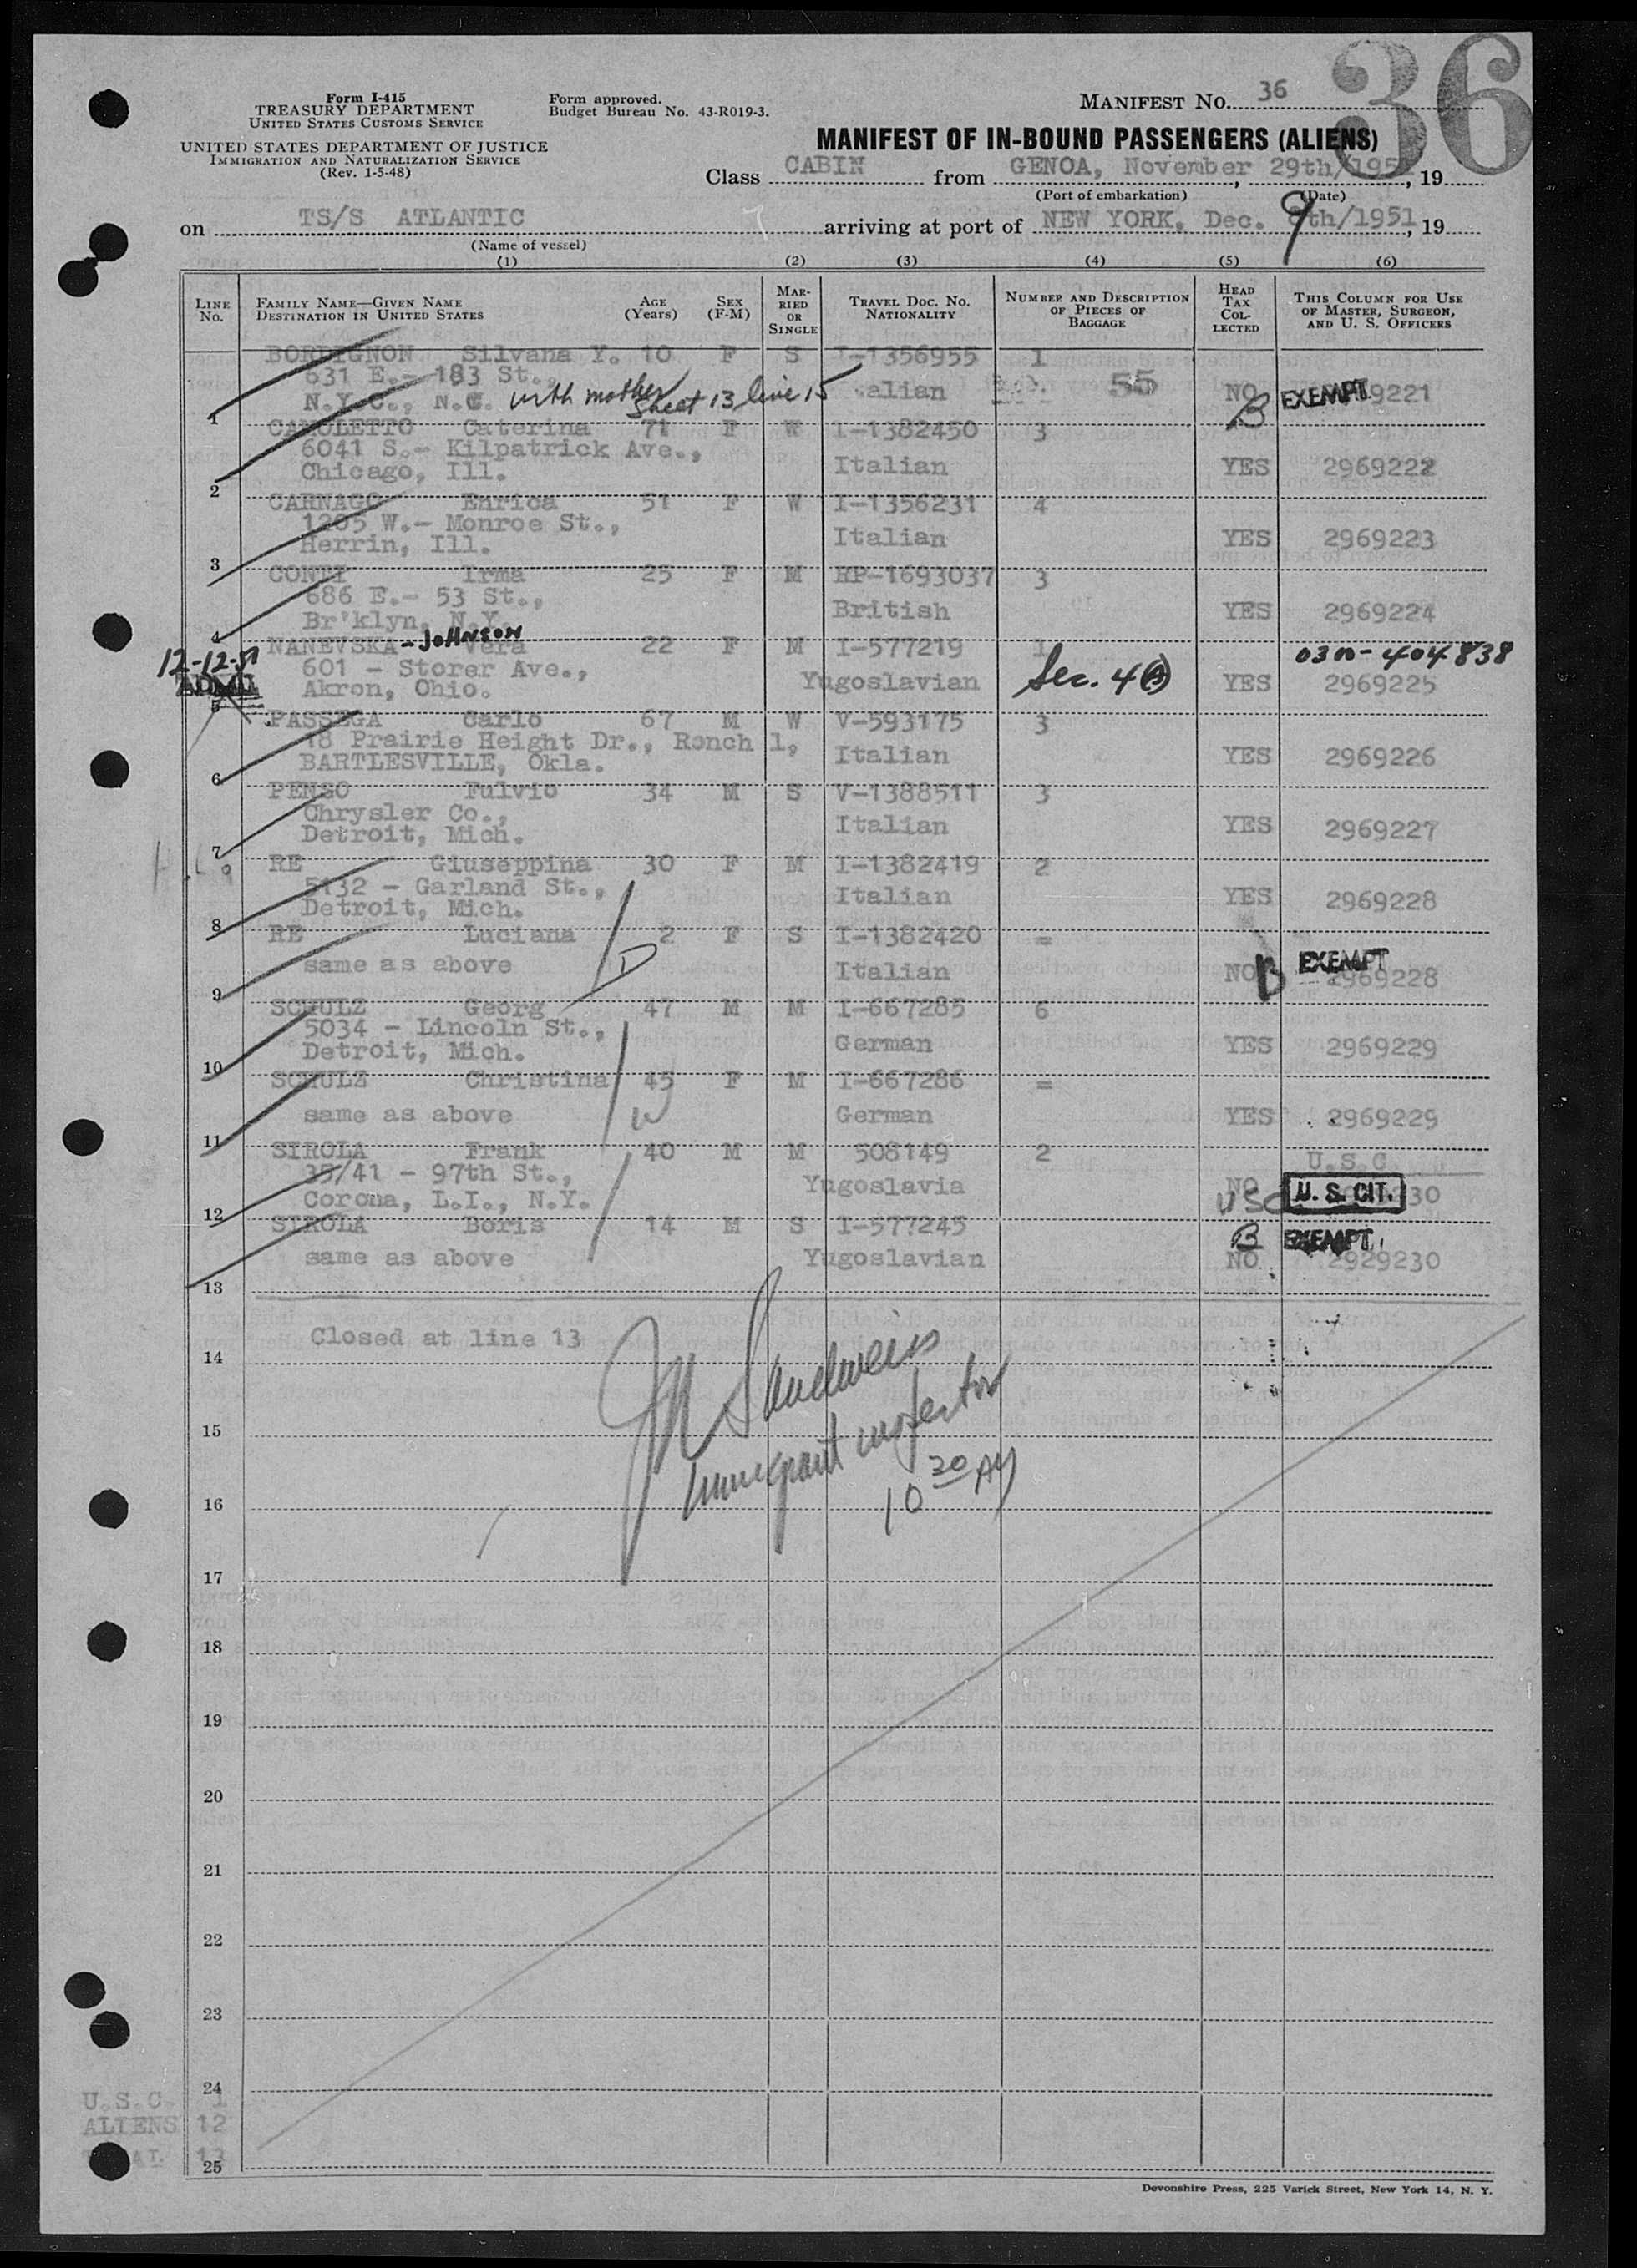 36
Form I-415
TREASURY DEPARTMENT
UNITED STATES CUSTOMS SERVICE
UNITED STATES DEPARTMENT OF JUSTICE
IMMIGRATION AND NATURALIZATION SERVICE
(Rev. 1-5-48)
Form approved.
Budget Bureau No. 43-R019-3.
MANIFEST NO. 36
MANIFEST OF IN-BOUND PASSENGERS (ALIENS)
Class CABIN from GENOA, November 29th/1951, 19
(Port of embarkation) (Date)
on TS/S ATLANTIC arriving at port of NEW YORK, Dec. 9th/1951, 19
(Name of vessel)
(1) (2) (3) (4) (5) (6)
LINE No. FAMILY NAME—GIVEN NAME DESTINATION IN UNITED STATES AGE (Years) SEX (F-M) MARRIED OR SINGLE TRAVEL DOC. NO. NATIONALITY NUMBER AND DESCRIPTION OF PIECES OF BAGGAGE HEAD TAX COLLECTED THIS COLUMN FOR USE OF MASTER, SURGEON, AND U. S. OFFICERS
BORDIGNON Silvana Y. 10 F S I-1356955 1
631 E.- 183 St.,
N.Y.C., N.Y. with mother sheet 13 line 15 Italian 55 NO B EXEMPT 9221
1
CAMOLETTO Caterina 71 F W I-1382450 3
6041 S.- Kilpatrick Ave.,
Chicago, Ill. Italian YES 2969222
2
CARNAGO Enrica 51 F W I-1356231 4
1205 W.- Monroe St.,
Herrin, Ill. Italian YES 2969223
3
CONTI Irma 25 F M RP-1693037 3
686 E.- 53 St.,
Br'klyn, N.Y. British YES 2969224
4
NANEVSKA - JOHNSON Vera 22 F M I-577219 1 0300-404838
12-12-51 601 - Storer Ave.,
ADM Akron, Ohio. Yugoslavian Sec. 4(A) YES 2969225
5
PASSEGA Carlo 67 M W V-593175 3
18 Prairie Height Dr., Ronch 1,
BARTLESVILLE, Okla. Italian YES 2969226
6
PENSO Fulvio 34 M S V-1388511 3
Chrysler Co.,
Detroit, Mich. Italian YES 2969227
7
RE Giuseppina 30 F M I-1382419 2
5132 - Garland St.,
Detroit, Mich. Italian YES 2969228
8
RE Luciana 2 F S I-1382420 =
same as above Italian NO B EXEMPT 2969228
9
SCHULZ Georg 47 M M I-667285 6
5034 - Lincoln St.,
Detroit, Mich. German YES 2969229
10
SCHULZ Christina 45 F M I-667286 =
same as above German YES 2969229
11
SIROLA Frank 40 M M 508149 2 U.S.C
35/41 - 97th St.,
Corona, L.I., N.Y. Yugoslavia NO USC U. S. CIT. 30
12
SIROLA Boris 14 M S I-577245 B EXEMPT
same as above Yugoslavian NO 2929230
13
Closed at line 13
14
15
16
17
18
19
20
21
22
23
24
25
Immigrant inspector
10 30 AM
U.S.C. 1
ALIENS 12
13
Devonshire Press, 225 Varick Street, New York 14, N. Y.